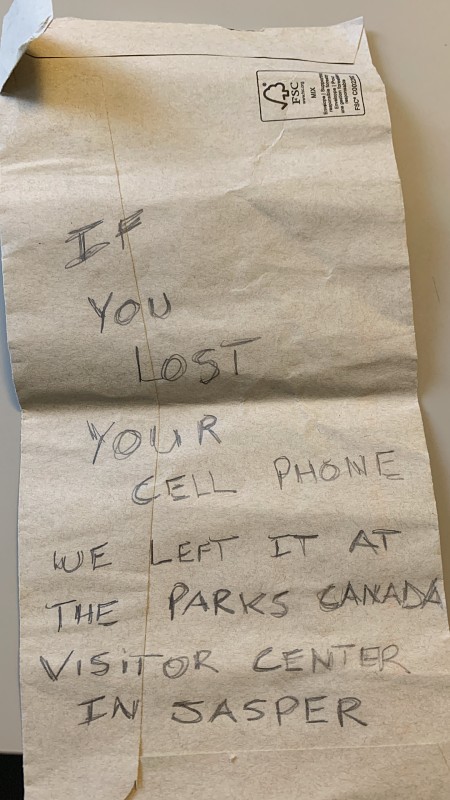 FSC
www.fsc.org
MIX
FSC® C
IF
YOU
LOST
YOUR
CELL PHONE
WE LEFT IT AT
THE PARKS CANADA
VISITOR CENTER
IN JASPER